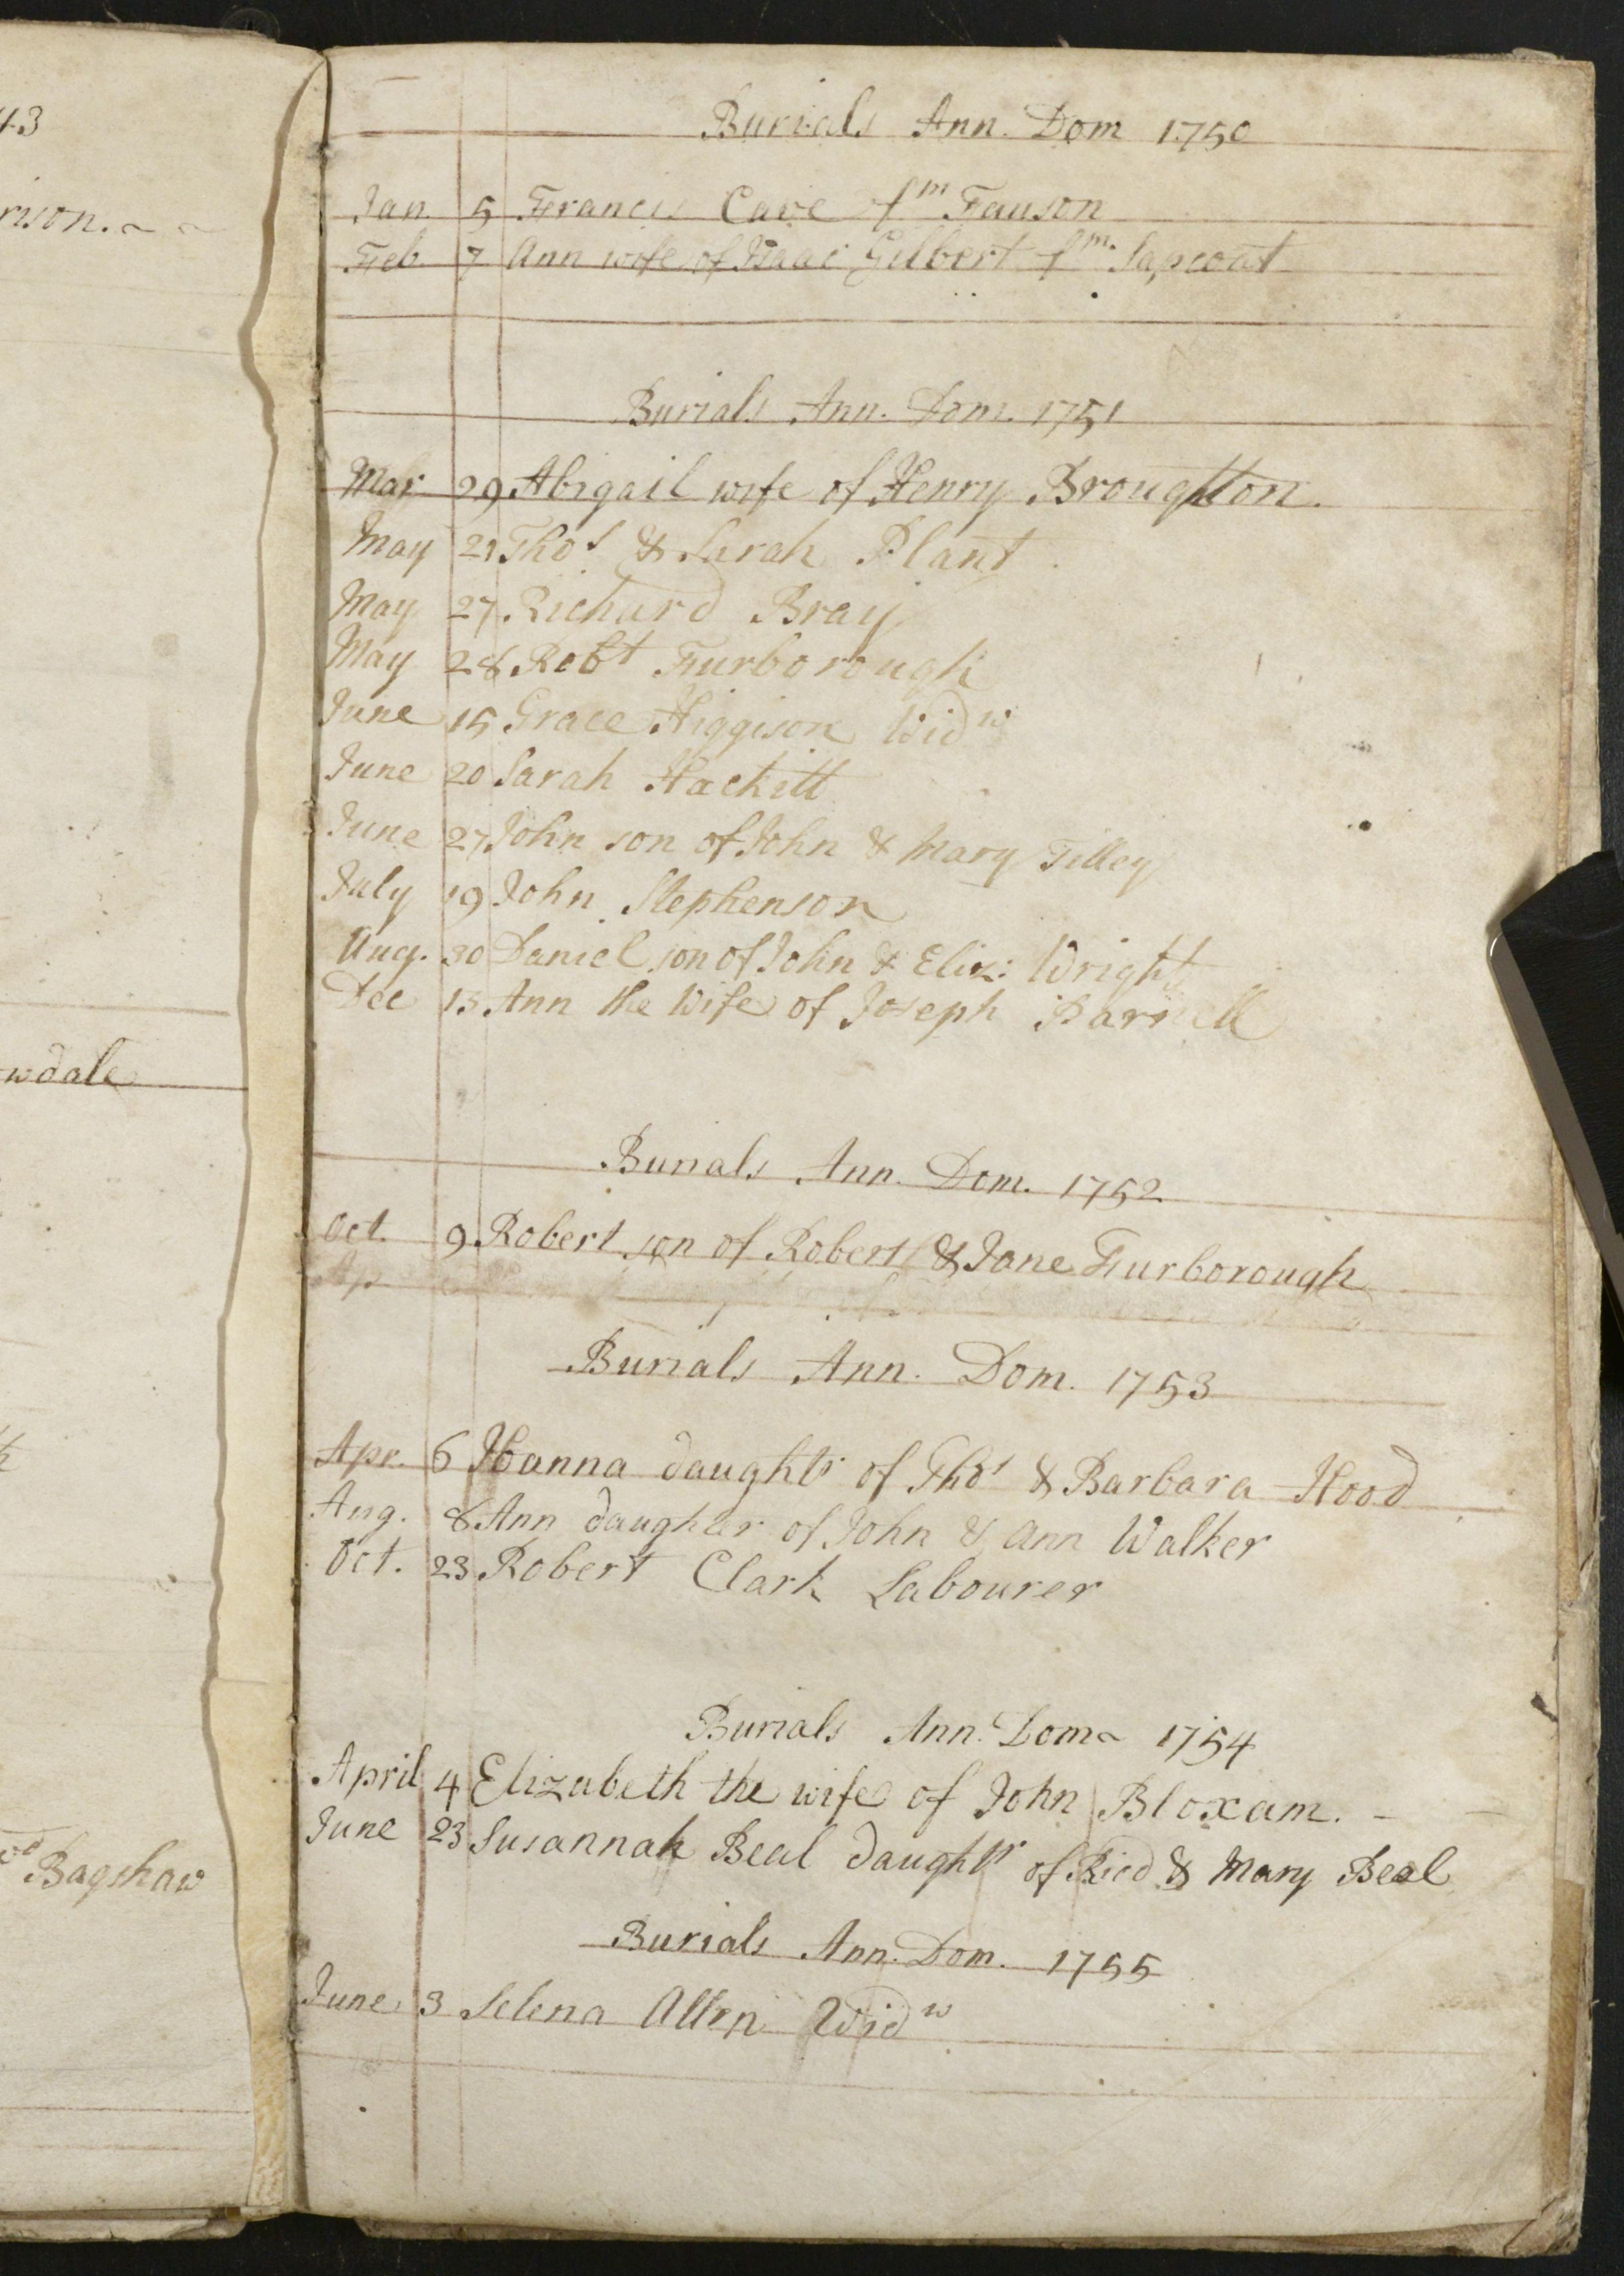 43
rison. ~ ~
wdale
Bagshaw
Burials Ann. Dom 1750
Jan. 5 Francis Cave fm Fauson
Feb 7 Ann wife of Isaac Gilbert fm. Sapcoat
Burials Ann. Dom. 1751
Mar 29 Abigail wife of Henry Broughton.
May 21 Thos & Sarah Plant.
May 27 Richard Bray
May 28 Robt Furborough
June 15 Grace Higgison Widw
June 20 Sarah Hackitt
June 27 John son of John & Mary Tilley
July 19 John Stephenson
Aug. 30 Daniel son of John & Eliz: Wright
Dec 13 Ann the Wife of Joseph Barnell
Burials Ann. Dom. 1752
Oct. 9 Robert son of Robert & Jane Furborough
Ap
Burials Ann. Dom. 1753
Apr. 6 Hanna daughtr of Thos & Barbara Hood
Aug. 8 Ann daughter of John & Ann Walker
Oct. 23 Robert Clark Labourer
Burials Ann. Dom~ 1754
April 4 Elizabeth the wife of John Bloxam. -
June 23 Susannah Beal daughtr of Ricd & Mary Beal
Burials Ann. Dom. 1755
June 3 Selena Allen Widw